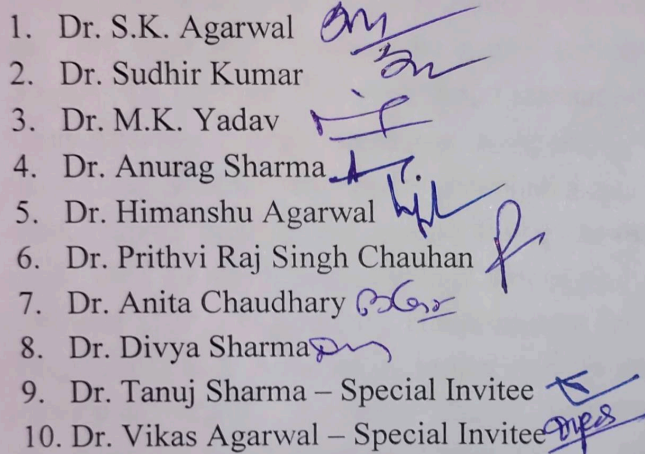 1. Dr. S.K. Agarwal
2. Dr. Sudhir Kumar
3. Dr. M.K. Yadav
4. Dr. Anurag Sharma
5. Dr. Himanshu Agarwal
6. Dr. Prithvi Raj Singh Chauhan
7. Dr. Anita Chaudhary
8. Dr. Divya Sharma
9. Dr. Tanuj Sharma – Special Invitee
10. Dr. Vikas Agarwal – Special Invitee